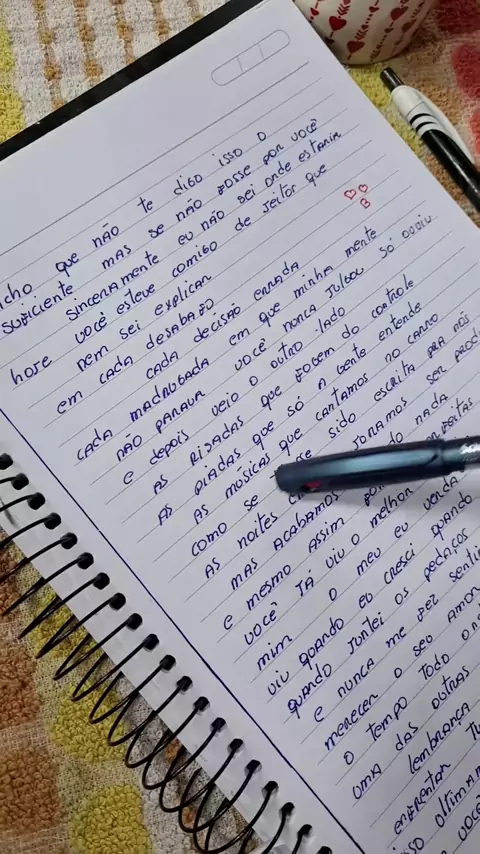 acho que não te digo isso o
suficiente mas se não fosse por você
sinceramente eu não sei onde estaria
hoje você esteve comigo de jeitor que
nem sei explicar
em cada desabafo
cada decisão errada
cada madrugada em que minha mente
não parava você nunca julgou só ouviu
e depois veio o outro lado
as risadas que fogem do controle
as piadas que só a gente entende
as músicas que cantamos no carro
como se sido escrita pra nós
as noites juramos ser
mas acabamos nada
e mesmo assim
você já viu o melhor
mim o meu eu
viu quando eu cresci quando
quando juntei os pedaços
e nunca me fez
merecer o seu amor
o tempo todo
uma das outras
lembrança
enfrentar
você